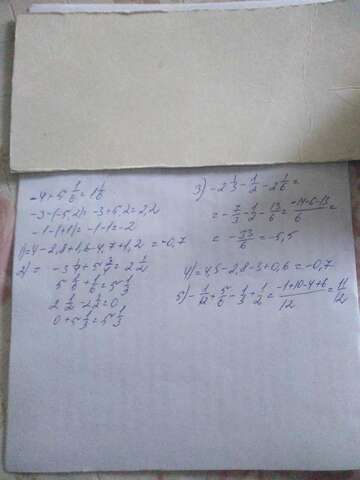 -4+5 1/6 = 1 1/6
-3-(-5,2)= -3+5,2=2,2
-1-(+1)= -1-1=-2
1)=4-2,8+1,6-4,7+1,2=-0,7
2) = -3 1/4+5 3/4=2 1/2
5 1/6+1/6=5 1/3
2 1/2-2 1/2=0
0+5 1/3=5 1/3
3) -2 1/3-1/2-2 1/6=
= -7/3-1/2-13/6= (-14-6-13)/6 =
= -33/6=-5,5
4)=4,5-2,8-3+0,6=-0,7
5) -1/12+5/6-1/3+1/2= (-1+10-4+6)/12=11/12